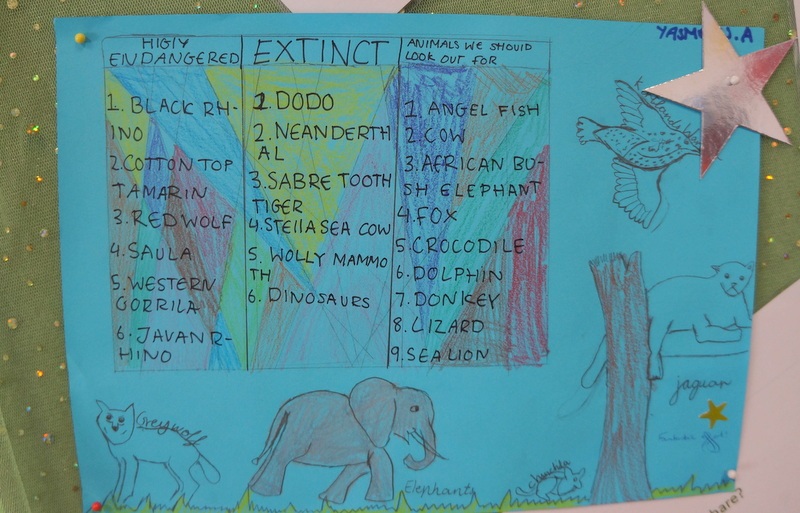 YASMIN.A
HIGLY
ENDANGERED
1. BLACK RH-
INO
2. COTTON TOP
TAMARIN
3. RED WOLF
4. SAULA
5. WESTERN
GORRILA
6. JAVAN R-
HINO
EXTINCT
1. DODO
2. NEANDERTH
AL
3. SABRE TOOTH
TIGER
4. STELLA SEA COW
5. WOLLY MAMMO
TH
6. DINOSAURS
ANIMALS WE SHOULD
LOOK OUT FOR
1. ANGEL FISH
2. COW
3. AFRICAN BU-
SH ELEPHANT
4. FOX
5. CROCODILE
6. DOLPHIN
7. DONKEY
8. LIZARD
9. SEA LION
jaguar
Greywolf
Elephants
hare?